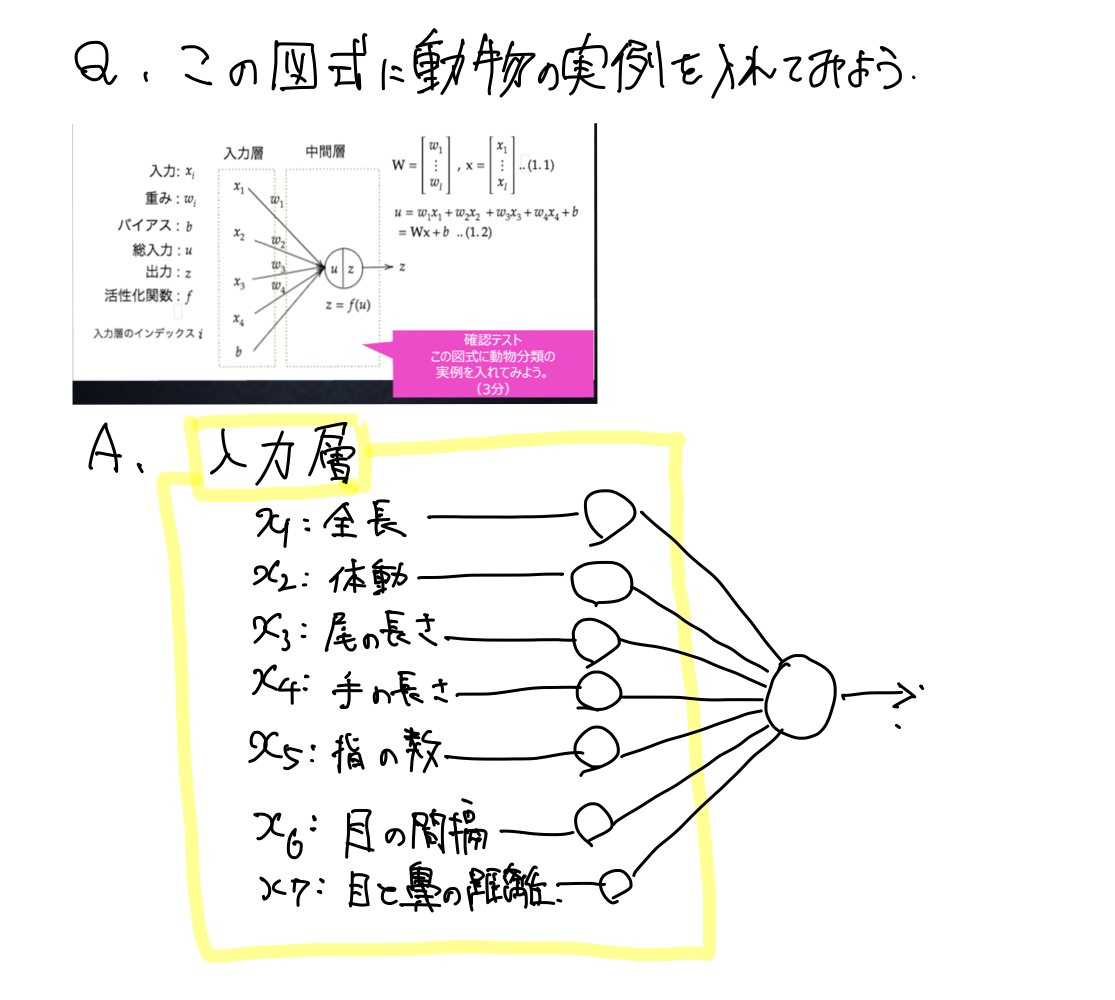 Q. この図式に動物の実例を入れてみよう.
入力層
中間層
入力: xᵢ
重み: wᵢ
バイアス: b
総入力: u
出力: z
活性化関数: f
入力層のインデックス i
x₁
w₁
x₂
w₂
x₃
w₃
w₄
x₄
b
u z
z
z = f(u)
W = [w₁ ⋮ wᵢ] , x = [x₁ ⋮ xᵢ] ..(1.1)
u = w₁x₁ + w₂x₂ + w₃x₃ + w₄x₄ + b
= Wx + b ..(1.2)
確認テスト
この図式に動物分類の
実例を入れてみよう。
(3分)
A. 入力層
x1: 全長
x2: 体動
x3: 尾の長さ
x4: 手の長さ
x5: 指の数
x6: 目の間隔
x7: 目と鼻の距離.